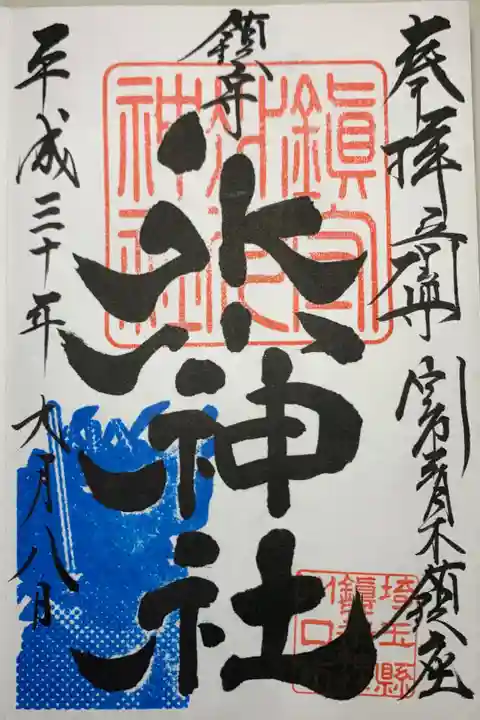 奉拝
青木鎮座
鎮守
氷川神社
平成三十年九月八日
鎮守
氷川
神社
埼玉縣